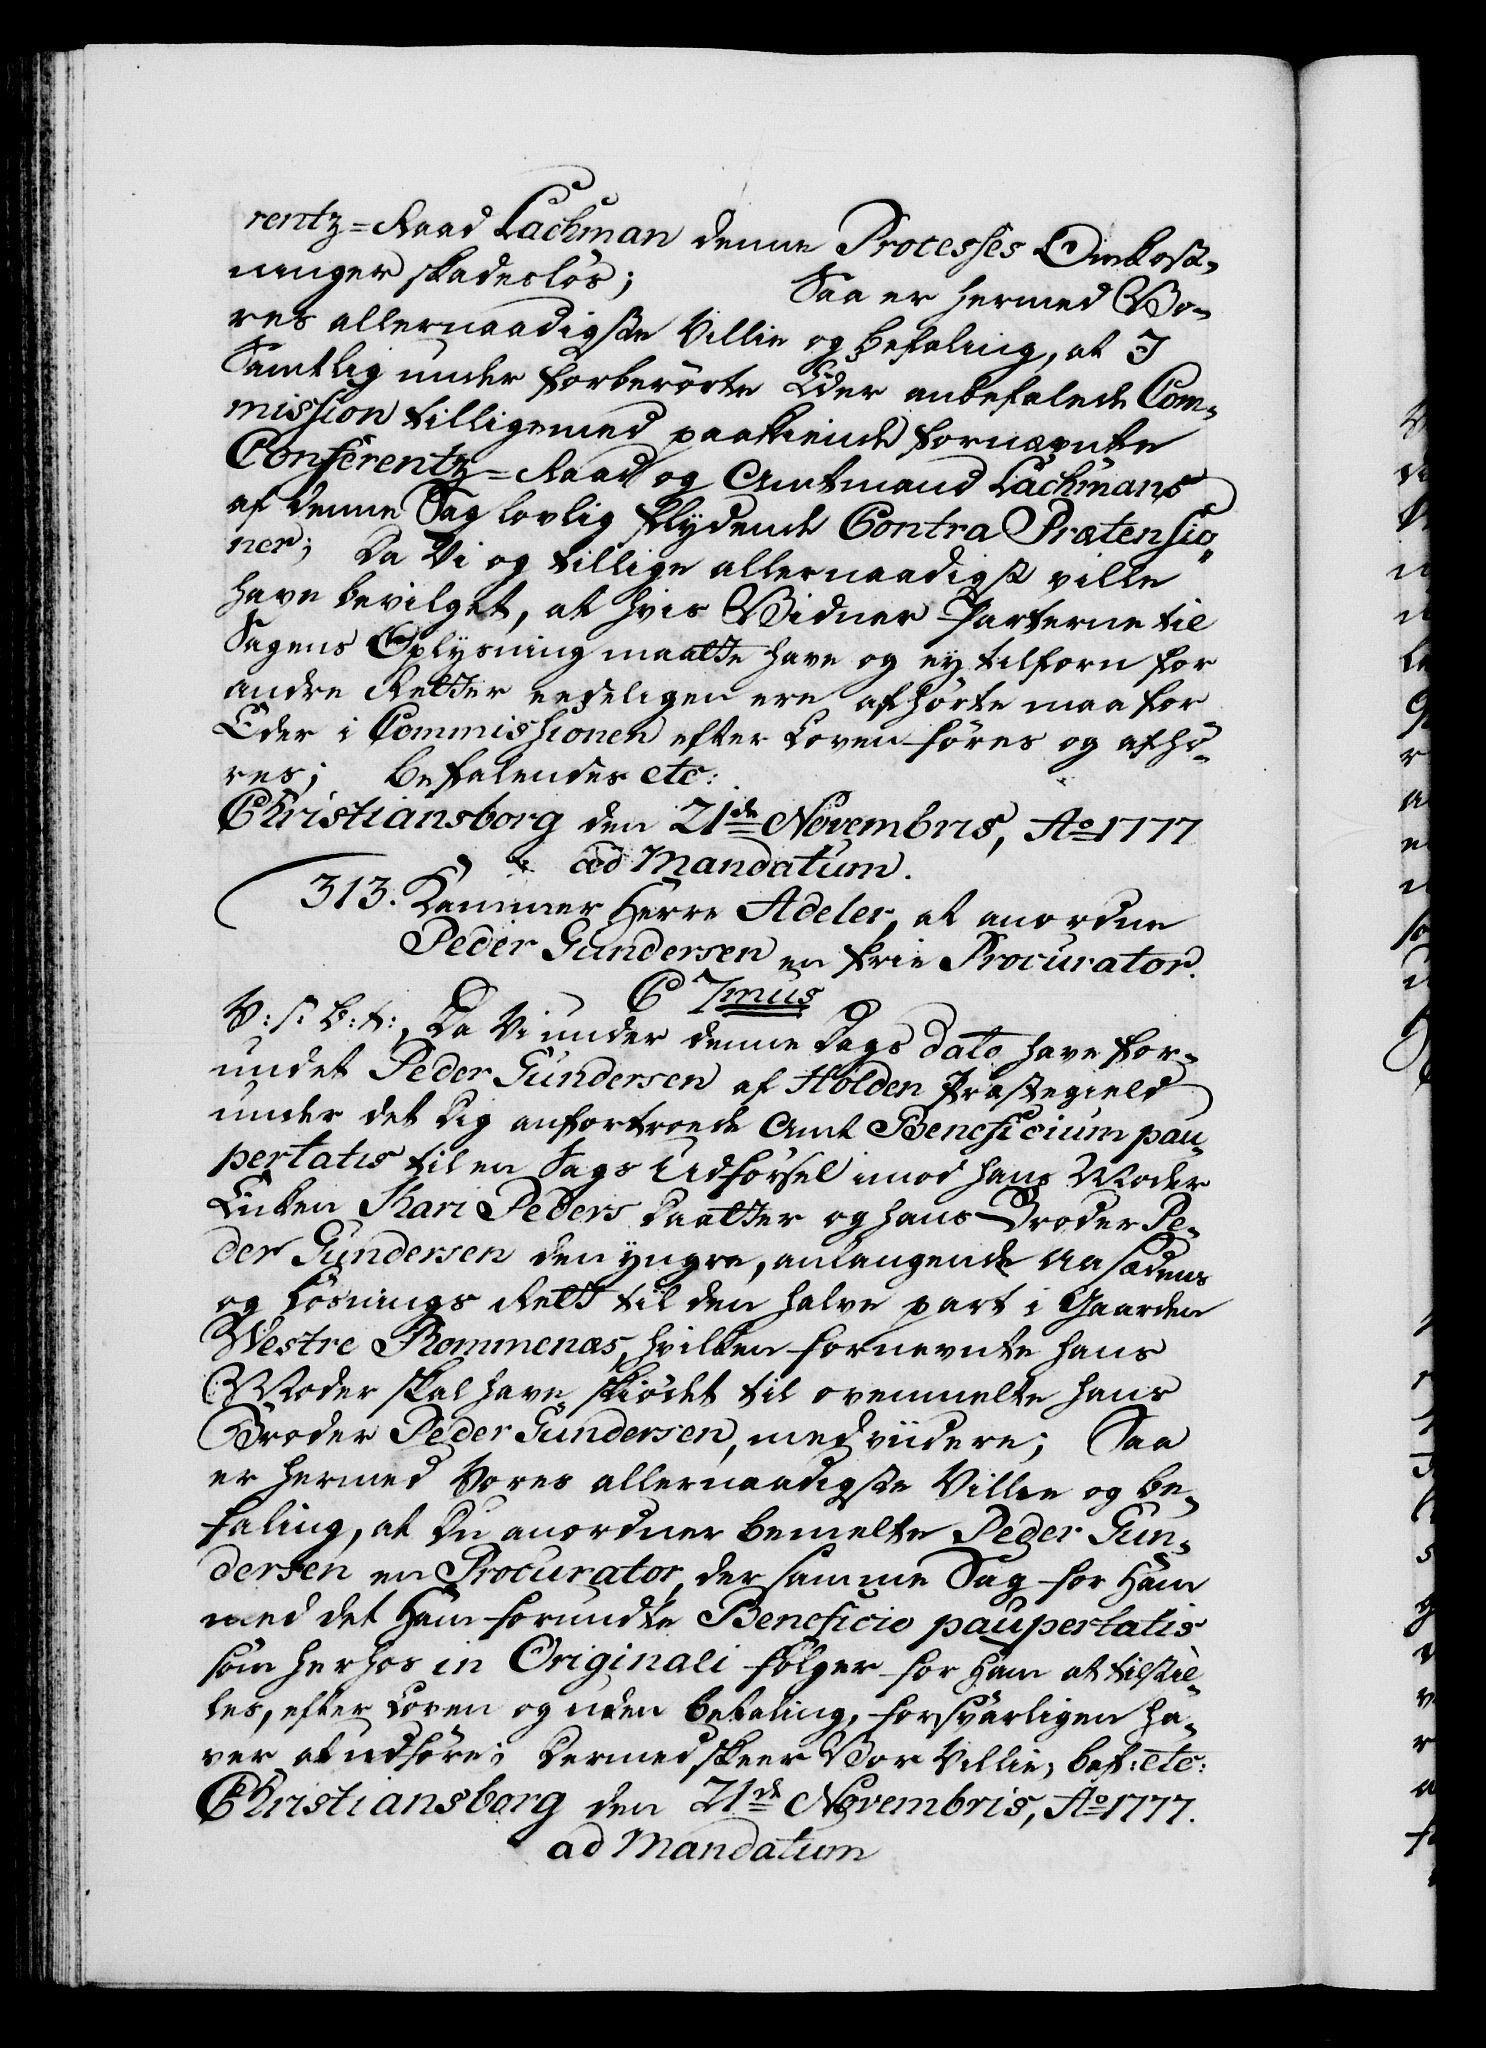 rentz=Raad Lachman denne Processes Omkost-
ninger skadeslös; Saa er hermed Vo-
res allernaadigste Villie og Befaling, at I
Samtlig under forberörte Eder anbefalede Com-
mission tilligemed paakiende fornævnte
Conferentz=Raad og Amtmand Lachmans
af denne Sag lovlig flydende Contra Prætensio-
ner; Da Vi og tillige allernaadigst ville
have bevilget, at hvis Vidner Parterne til
Sagens Oplysning maatte have og ey tilforn for
andre Retter eedeligen ere afhörte maa for
Eder i Commissionen efter Loven föres og afhö-
res; Befalendes etc:
Christiansborg den 21de Novembris, Ao 1777
ad Mandatum.
313. Kammer Herre Adeler, at anordne
Peder Gundersen en frie Procurator.
C 7mus
V: s: b: t:, Da Vi under denne Dags dato have for-
undet Peder Gundersen af Holden Præstegield
under det Dig anfortroede Amt Beneficium pau-
pertatis til en Sags Udförsel imod hans Moder
Enken Kari Peders Daatter og hans Broder Pe-
der Gundersen den yngre, anlangende Aasædens
og Lösnings Rett til den halve part i Gaarden
Westre Rommenæs, hvilken fornevnte hans
Moder skal have skiödet til ovenmelte hans
Broder Peder Gundersen, med viidere; Saa
er hermed Vores allernaadigste Villie og Be-
faling, at Du anordner bemelte Peder Gun-
dersen en Procurator, der samme Sag for Ham
med det Ham forundte Beneficio paupertatis
som herhos in Originali fölger for Ham at tilstil-
les, efter Loven og uden Betaling, forsvarligen ha-
ver at udföre; Dermed skeer Vor Villie, bef: etc:
Christiansborg den 21de Novembris, Ao 1777.
ad Mandatum